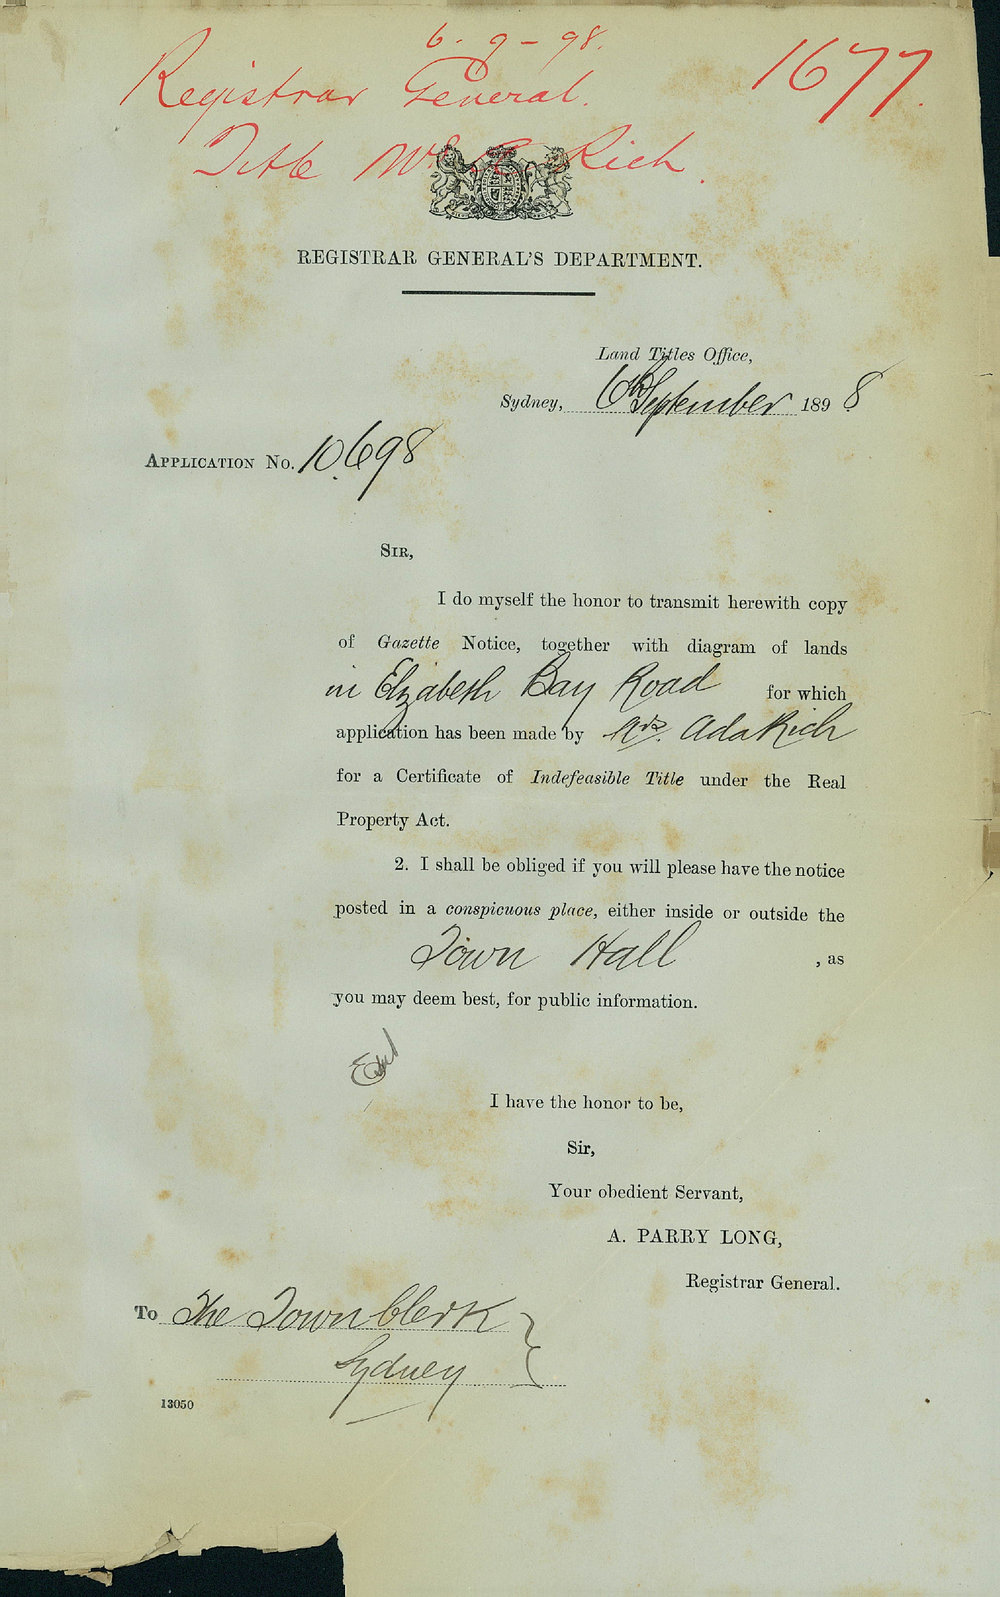 6-9-98.
1677.
Registrar General.
Title Mrs A Rich.
REGISTRAR GENERAL'S DEPARTMENT.
Land Titles Office,
Sydney, 6th September 1898
APPLICATION No. 10698
SIR,
I do myself the honor to transmit herewith copy
of Gazette Notice, together with diagram of lands
in Elizabeth Bay Road for which
application has been made by Mrs. Ada Rich
for a Certificate of Indefeasible Title under the Real
Property Act.
2. I shall be obliged if you will please have the notice
posted in a conspicuous place, either inside or outside the
Town Hall , as
you may deem best, for public information.
I have the honor to be,
Sir,
Your obedient Servant,
A. PARRY LONG,
Registrar General.
To The Town Clerk
Sydney
13050